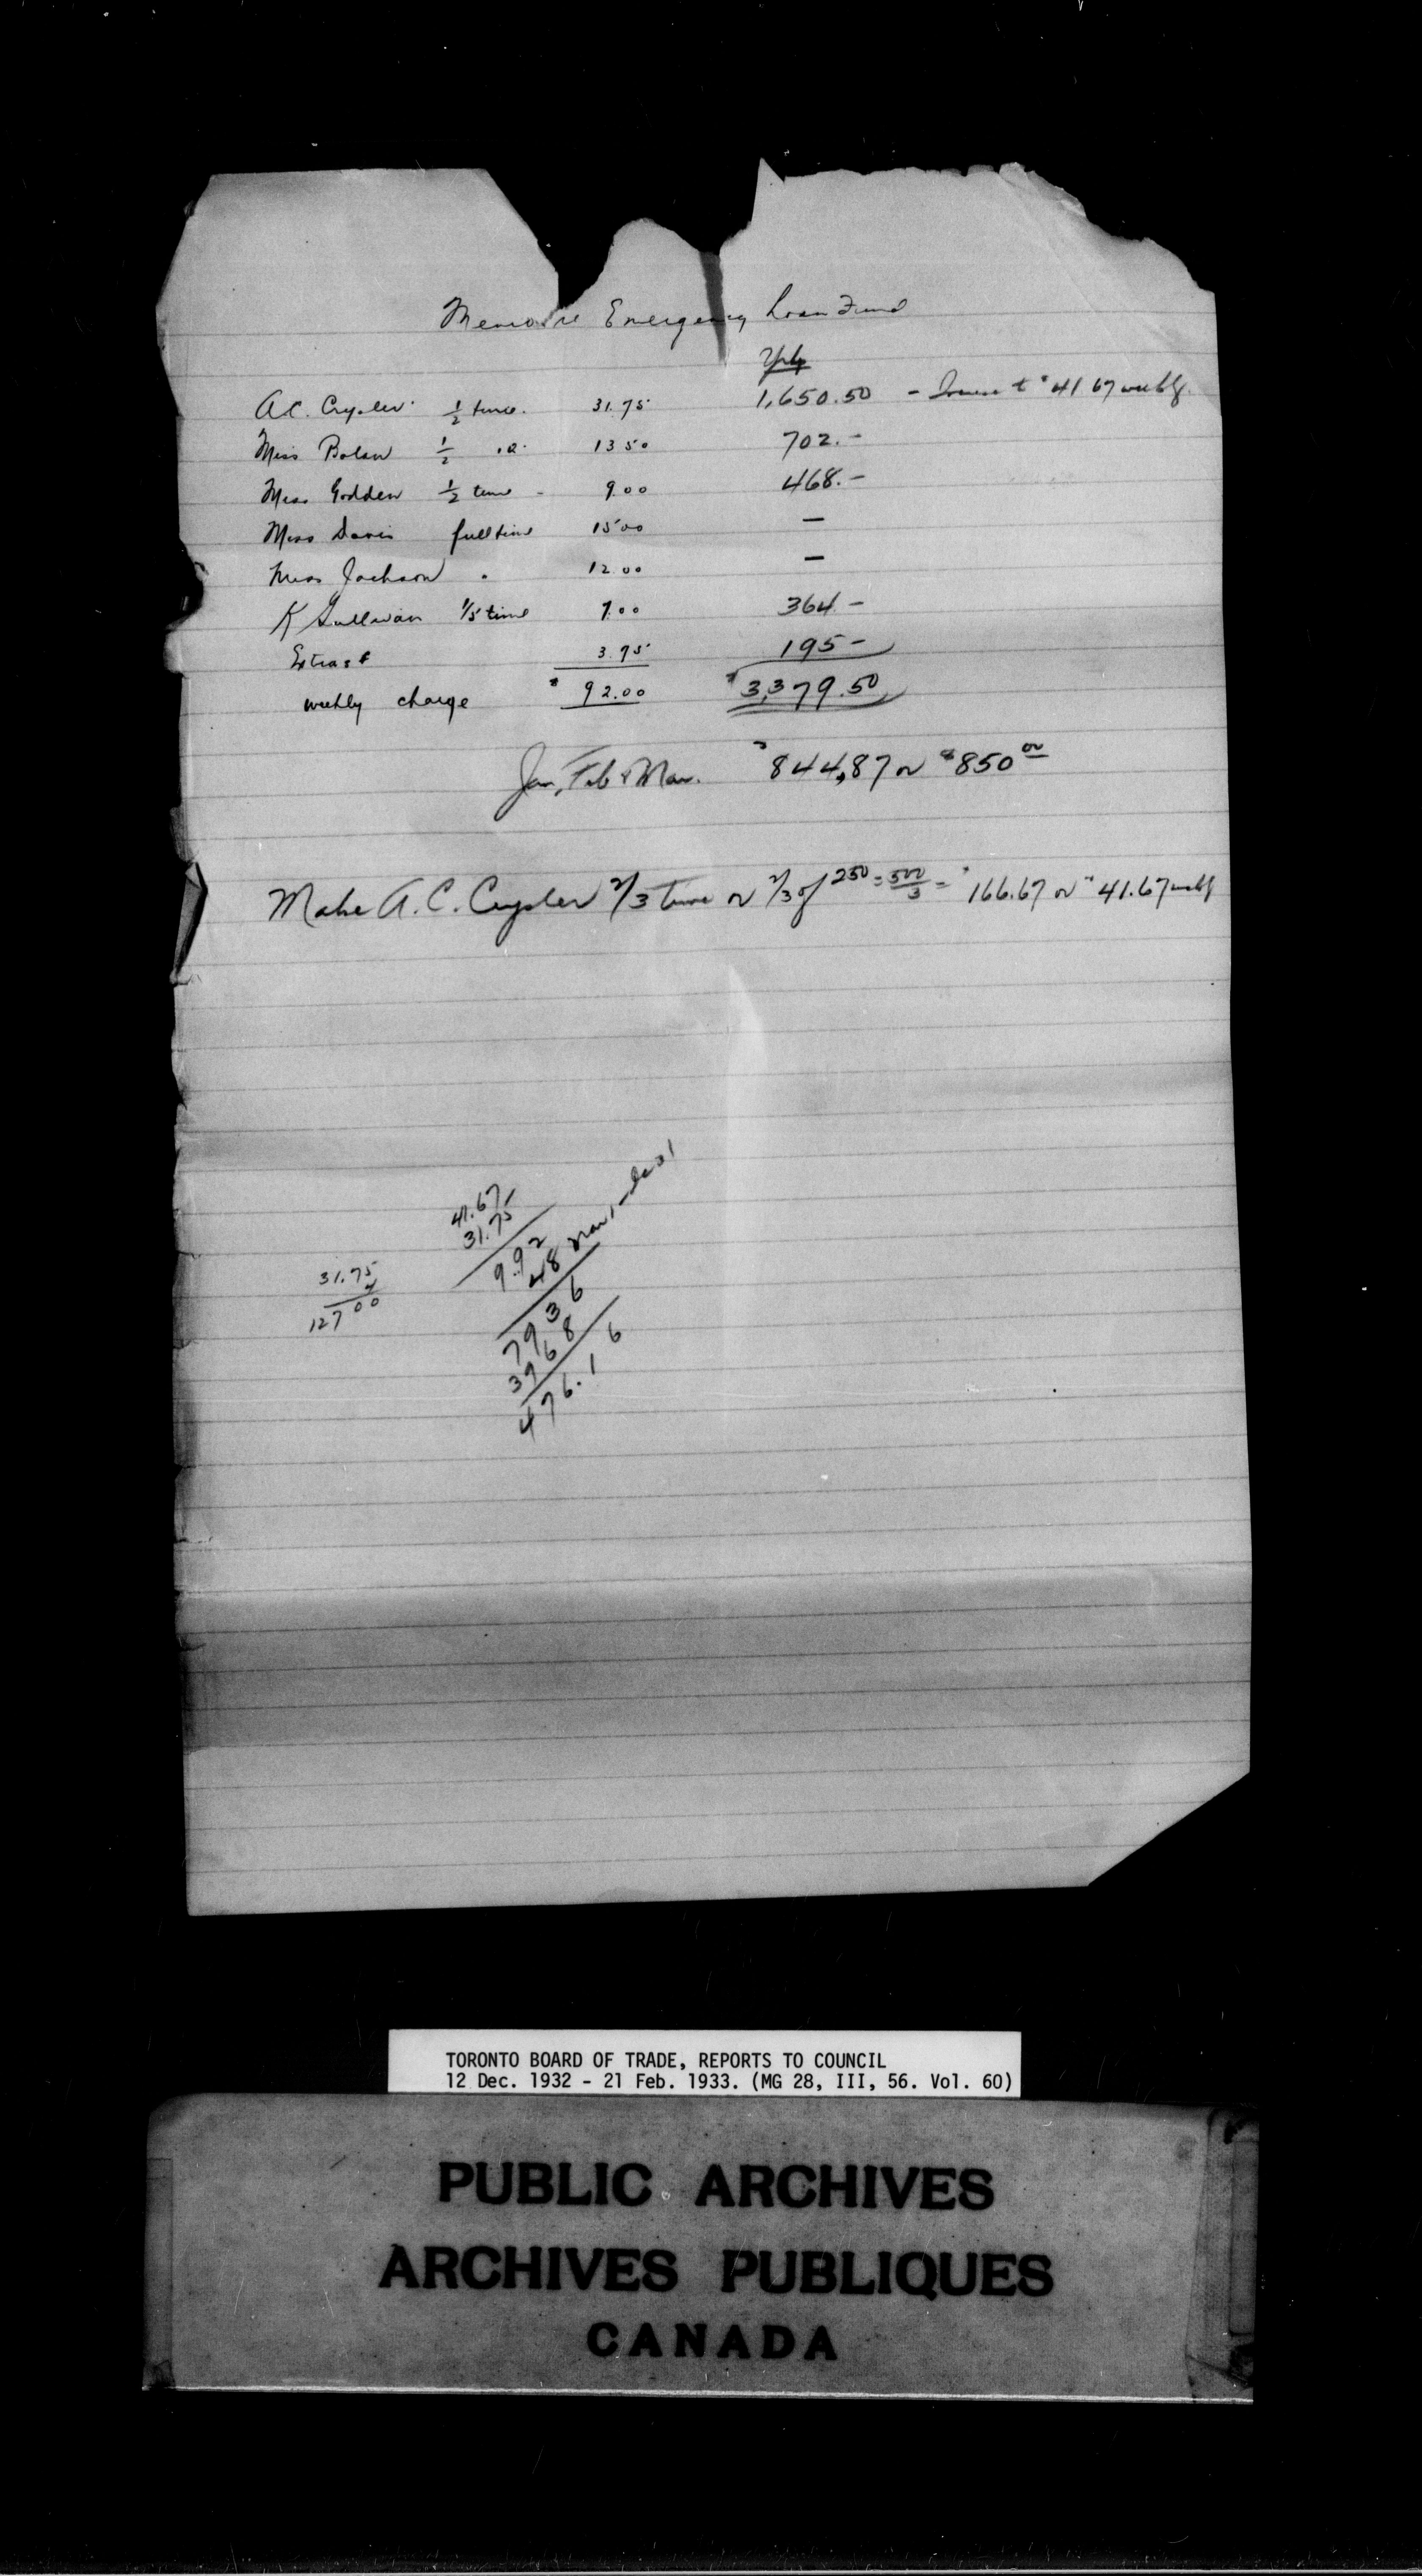 Memo re Emergency Loan Fund
Yrly
A.C. Crysler ½ time. 31.75 1,650.50 - to $41 67 weekly.
Miss Bolan ½ 13 50 702.-
Miss Godden ½ time - 9.00 468.-
Miss Davis full time 15 00 -
Miss Jackson " 12 00 -
K Sullivan 1/5 time 7.00 364 -
Extras 3.75 195 -
weekly charge $ 92.00 $3,379.50
Jan, Feb & Mar. $844,87 or $850 00
Make A.C. Crysler 2/3 time or 2/3 of 250 = 500/3 = $166.67 or $41.67 weekly
41.67
31.75
9.92
48 Jan 1 -
7936
3968
476.16
31.75
4
127 00
TORONTO BOARD OF TRADE, REPORTS TO COUNCIL
12 Dec. 1932 - 21 Feb. 1933. (MG 28, III, 56. Vol. 60)
PUBLIC ARCHIVES
ARCHIVES PUBLIQUES
CANADA